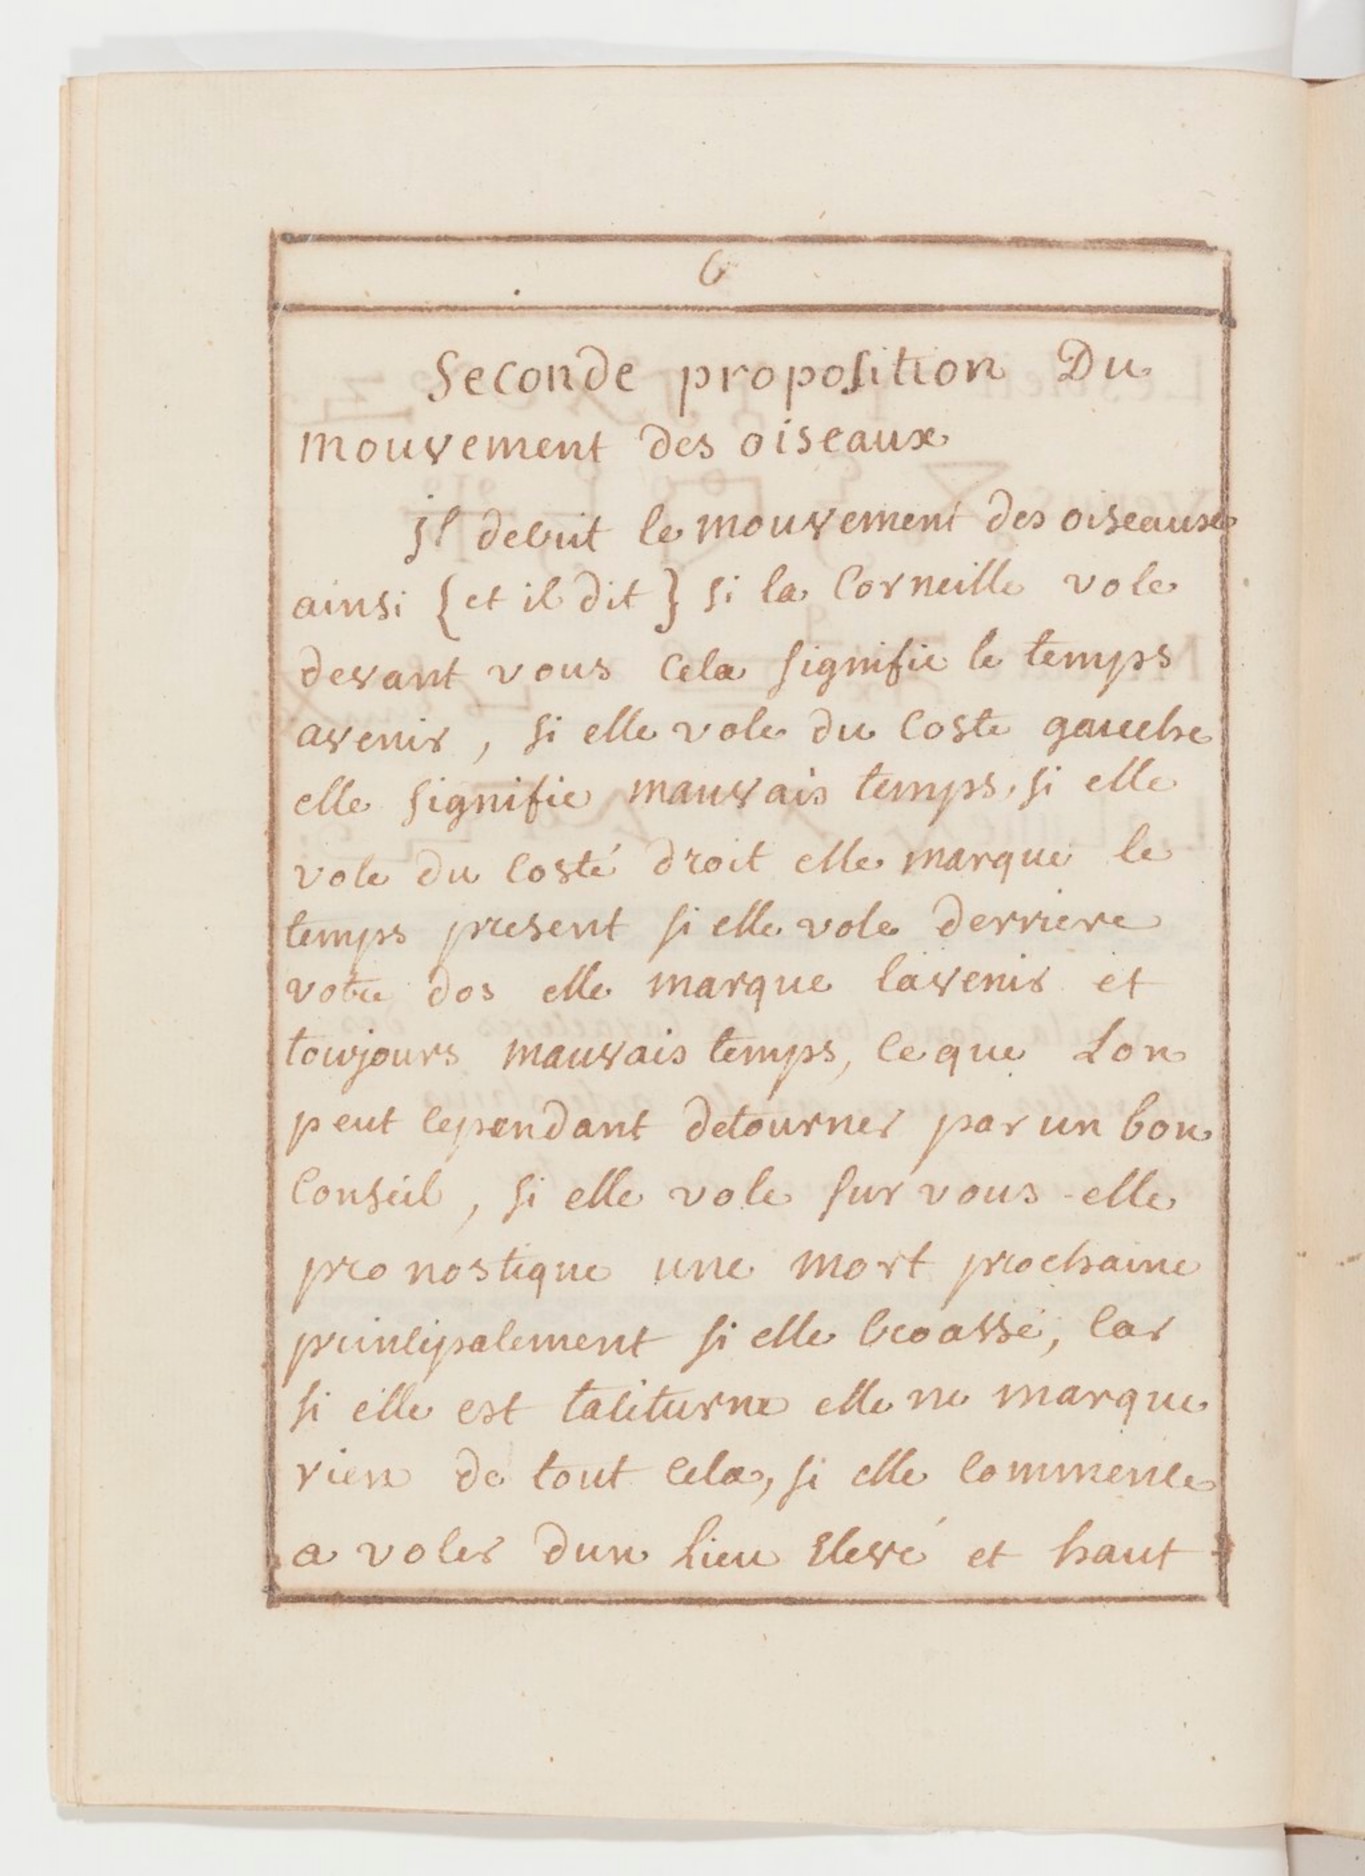 6
Seconde proposition Du
mouvement des oiseaux
jl decrit le mouvement des oiseaux
ainsi {et il dit} si la Corneille vole
devant vous cela signifie le temps
avenir, si elle vole du coste gauche
elle signifie mauvais temps, si elle
vole du costé droit elle marque le
temps present si elle vole derriere
votre dos elle marque lavenir et
toujours mauvais temps, ce que Lon
peut cependant detourner par un bon
Conseil, si elle vole sur vous elle
pronostique une mort prochaine
principalement si elle croasse, Car
si elle est taciturne elle ne marque
rien de tout cela, si elle commence
a voler dun lieu Elevé et haut